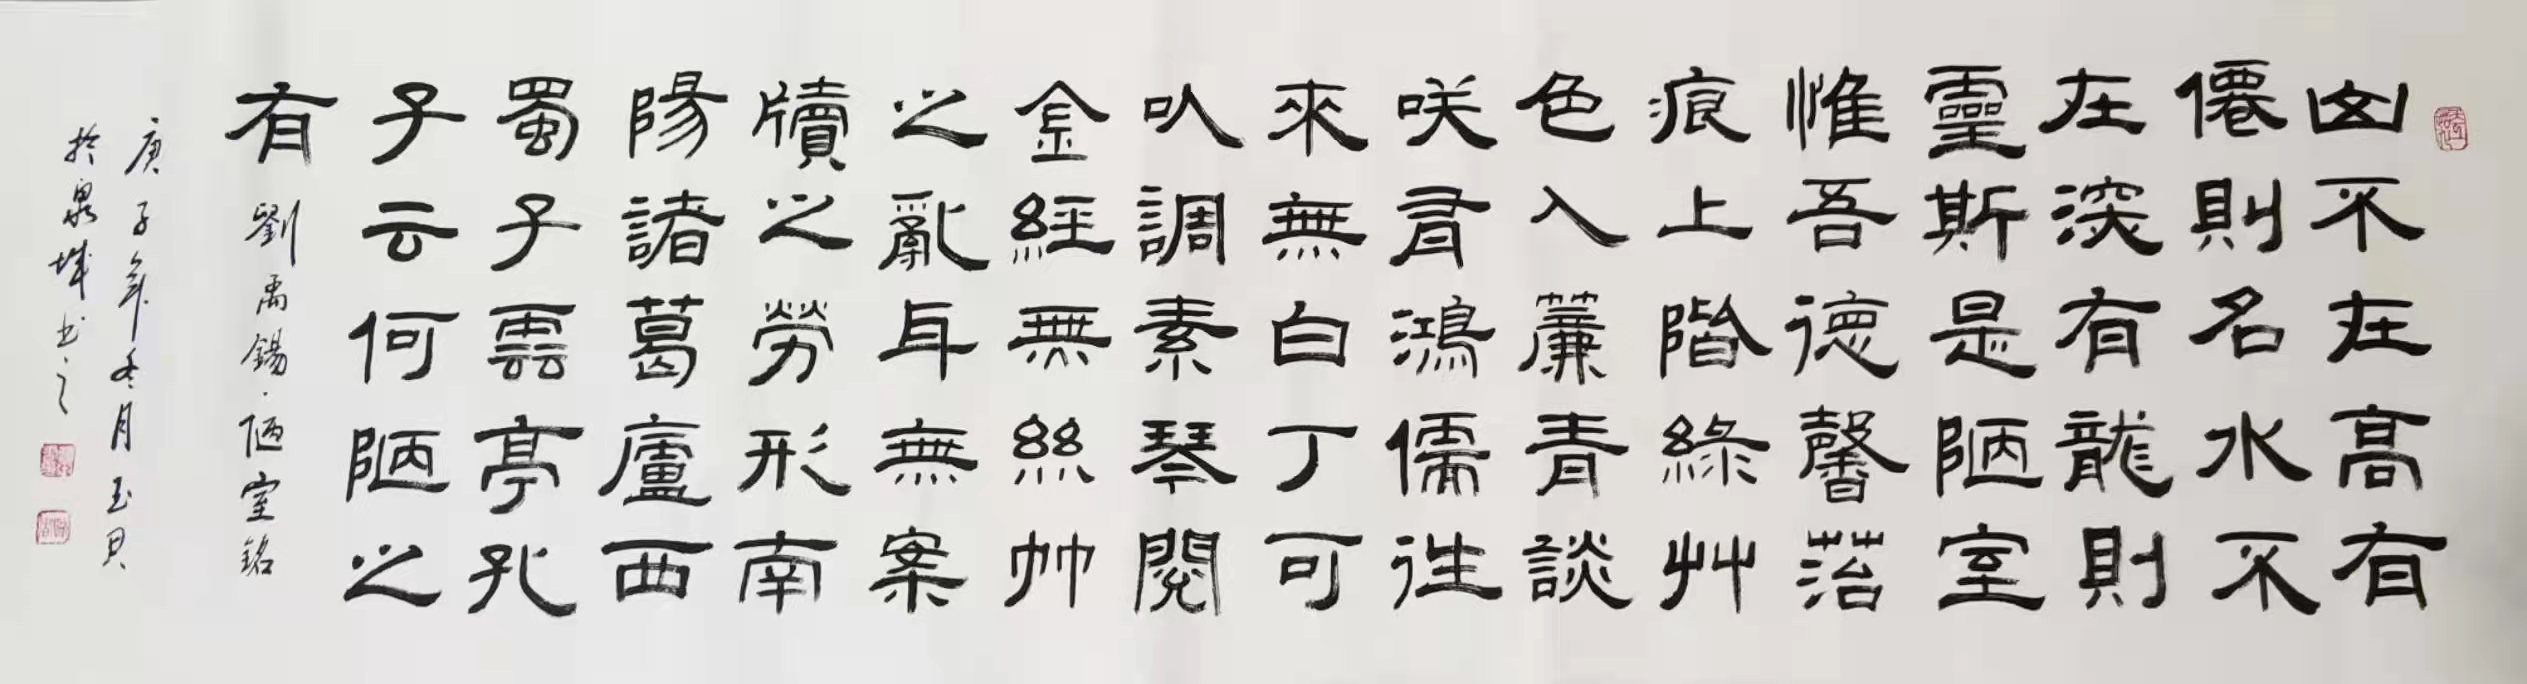 山不在高有
僊則名水不
在深有龍則
靈斯是陋室
惟吾德馨菭
痕上階綠艸
色入簾青談
咲有鴻儒往
來無白丁可
以調素琴閱
金經無絲竹
之亂耳無案
牘之勞形南
陽諸葛廬西
蜀子雲亭孔
子云何陋之
有
劉禹錫·陋室銘
庚子年冬月玉貝
於泉城书之